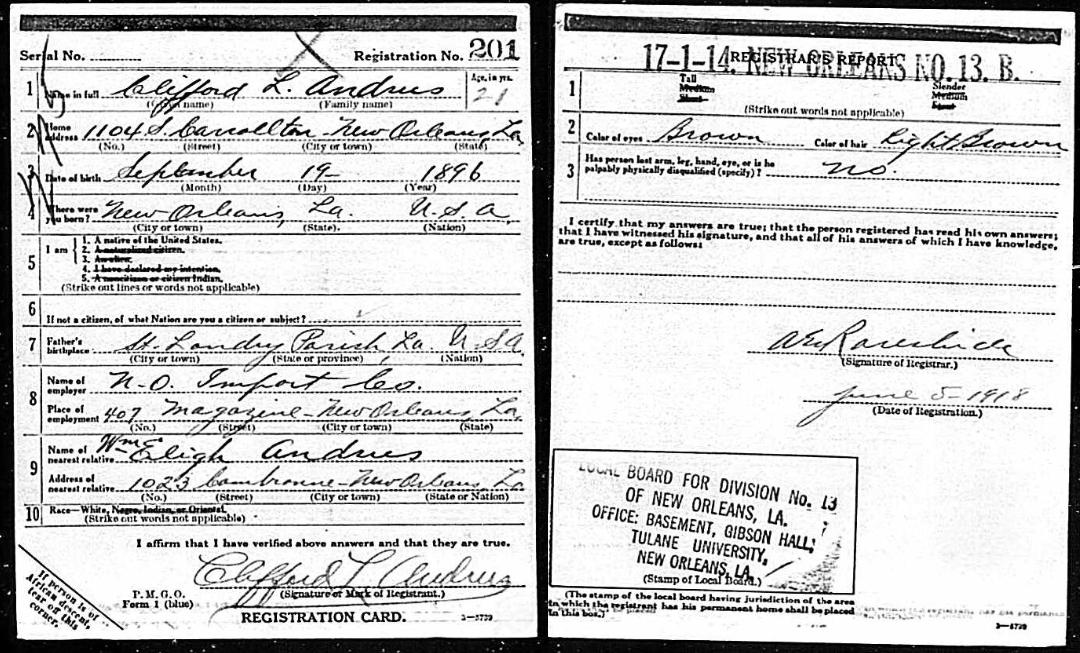 Serial No. Registration No. 201
1 Name in full Clifford L. Andrus Age, in yrs. 21
(Given name) (Family name)
2 Home address 1104 S. Carrollton - New Orleans, La
(No.) (Street) (City or town) (State)
3 Date of birth September 19- 1896
(Month) (Day) (Year)
4 Where were you born? New Orleans, La. U.S.A.
(City or town) (State). (Nation)
5 I am
1. A native of the United States.
2. A naturalized citizen.
3. An alien.
4. I have declared my intention.
5. A noncitizen or citizen Indian.
(Strike out lines or words not applicable)
6 If not a citizen, of what Nation are you a citizen or subject?
7 Father's birthplace St. Landry Parish, La. U S A
(City or town) (State or province) (Nation)
8 Name of employer N.O. Import Co.
Place of employment 407 Magazine - New Orleans, La,
(No.) (Street) (City or town) (State)
9 Name of nearest relative Eligh Andrus
Address of nearest relative 1023 Cambronne - New Orleans, La
(No.) (Street) (City or town) (State or Nation)
10 Race—White, Negro, Indian, or Oriental.
(Strike out words not applicable)
I affirm that I have verified above answers and that they are true.
Clifford L Andrus
P. M. G. O. (Signature or Mark of Registrant.)
Form 1 (blue)
REGISTRATION CARD. 3—5739
If person is of
African descent,
tear off this
corner.
17-1-14. NEW ORLEANS NO. 13. B.
REGISTRAR'S REPORT
1 Tall Slender
Medium Medium
Short Stout
(Strike out words not applicable)
2 Color of eyes Brown Color of hair Light Brown
3 Has person lost arm, leg, hand, eye, or is he
palpably physically disqualified (specify)? no.
I certify that my answers are true; that the person registered has read his own answers;
that I have witnessed his signature, and that all of his answers of which I have knowledge,
are true, except as follows:
(Signature of Registrar.)
June 5-1918
(Date of Registration.)
LOCAL BOARD FOR DIVISION No. 13
OF NEW ORLEANS, LA.
OFFICE: BASEMENT, GIBSON HALL,
TULANE UNIVERSITY,
NEW ORLEANS, LA.
(Stamp of Local Board.)
(The stamp of the local board having jurisdiction of the area
in which the registrant has his permanent home shall be placed
in this box.)
3—5739